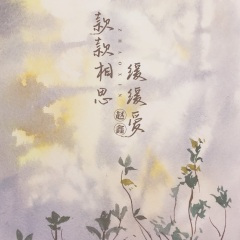 款款相思
缓缓爱
ZHAOXIN
赵鑫